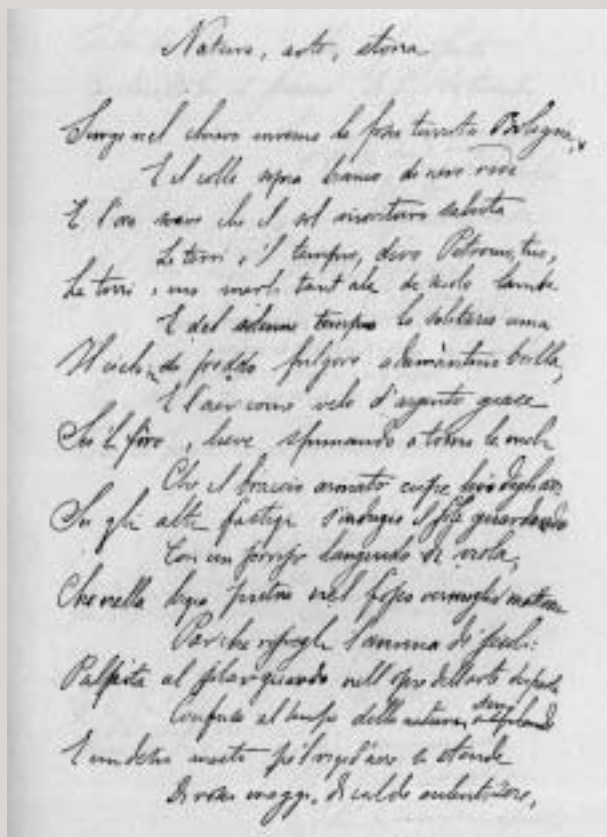 Natura, arte, storia
Surge nel chiaro inverno la fosca turrita Bologna,
E il colle sopra bianco di neve ride
E l'ora soave che il sol morituro saluta
Le torri e 'l tempio, divo Petronio, tuo,
Le torri i cui merli tant'ala di secolo lambe
E del solenne tempio la solitaria cima
Il cielo in freddo fulgore adamantino brilla,
E l'aer come velo d'argento giace
Su 'l fòro, lieve sfumando a torno le moli
Che il braccio armato cupe levò degli avi
Su gli alti fastigi s'indugia il sole guardando
Con un sorriso languido di viola,
Che nella bigia pietra nel fosco vermiglio mattone
Par che risvegli l'anima di secoli:
Palpita al guardo nell' dell'arte
Confusa al della natura,
E un desio mesto pe'l rigid'aere si stende
Di rossi maggi, di calde aulenti sere,